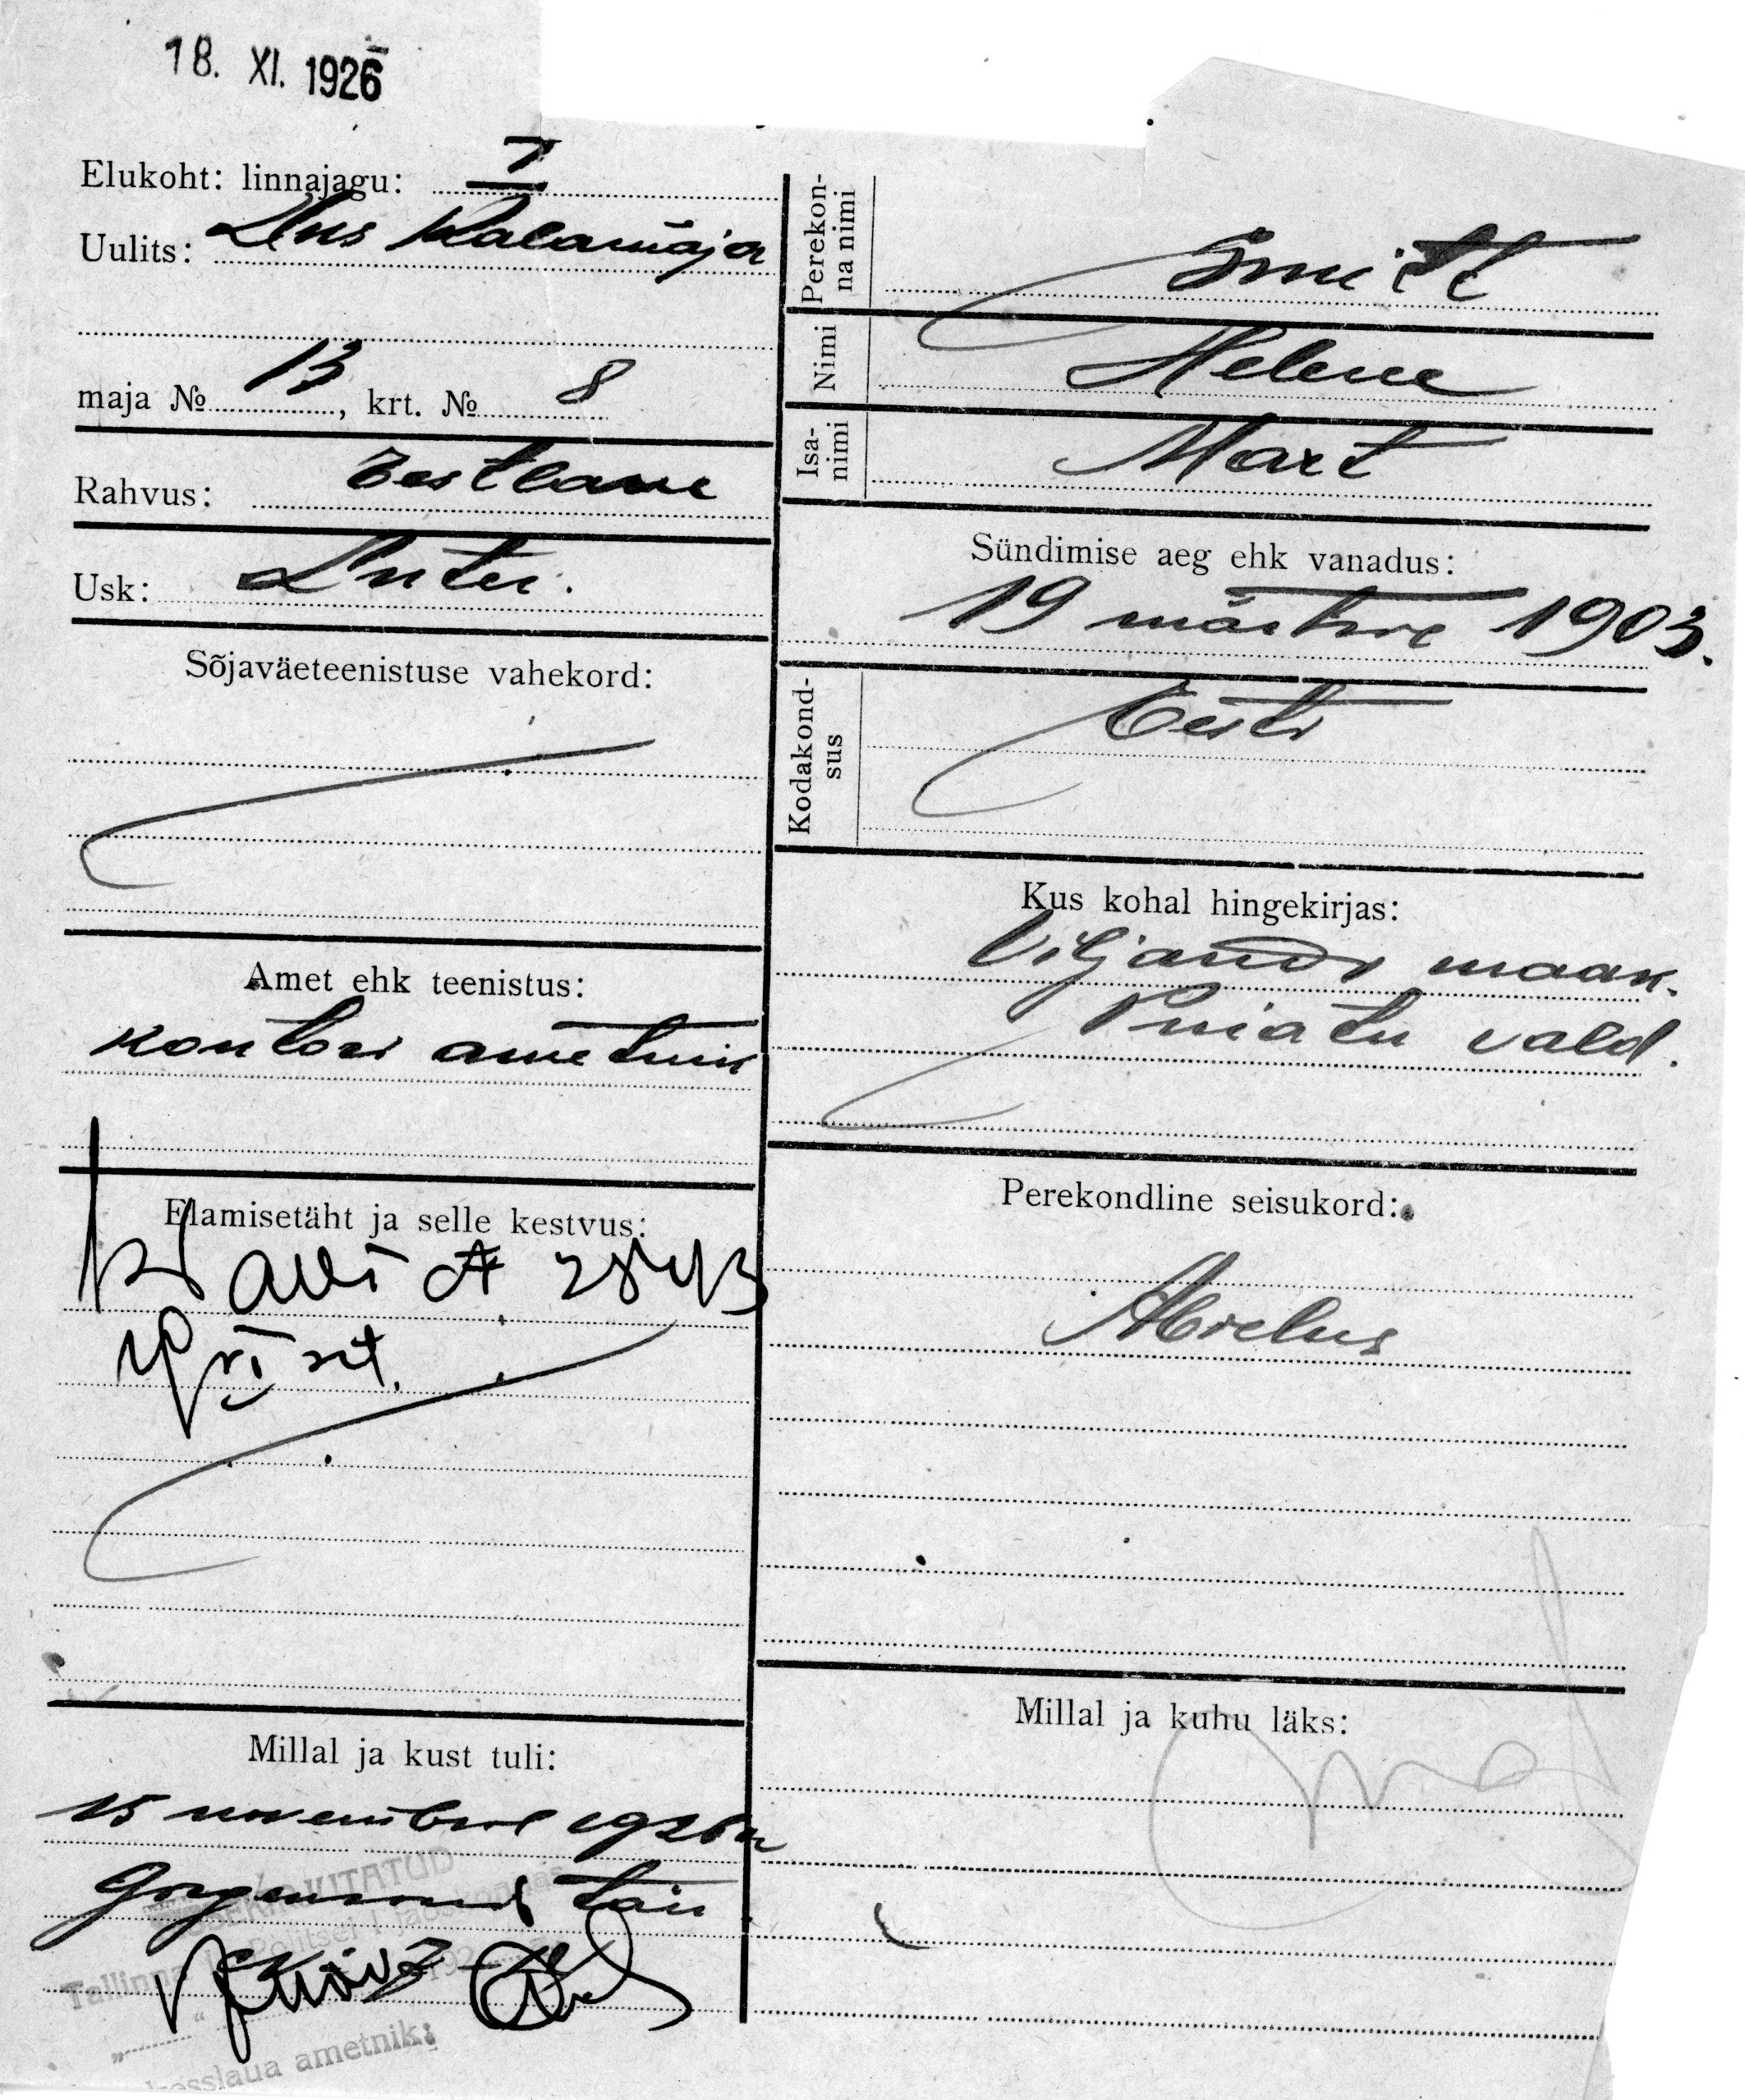 18. XI. 1926
Elukoht: linnajagu: I
Uulits: Uus Kalamaja
maja № 13, krt. № 8
Rahvus: Eestlane
Usk: Luteri.
Sõjaväeteenistuse vahekord:
Amet ehk teenistus:
Kontori ametnik
Elamisetäht ja selle kestvus:
Millal ja kust tuli:
15 novembril 1926 a
tän
Tallinna Politsei
ametnik:
Perekonna nimi
Smitt
Nimi
Helene
Isanimi
Mart
Sündimise aeg ehk vanadus:
19 märtsil 1903.
Kodakondsus
Eesti
Kus kohal hingekirjas:
Viljandi maak.
Puiatu vald.
Perekondline seisukord:
Abielus
Millal ja kuhu läks: